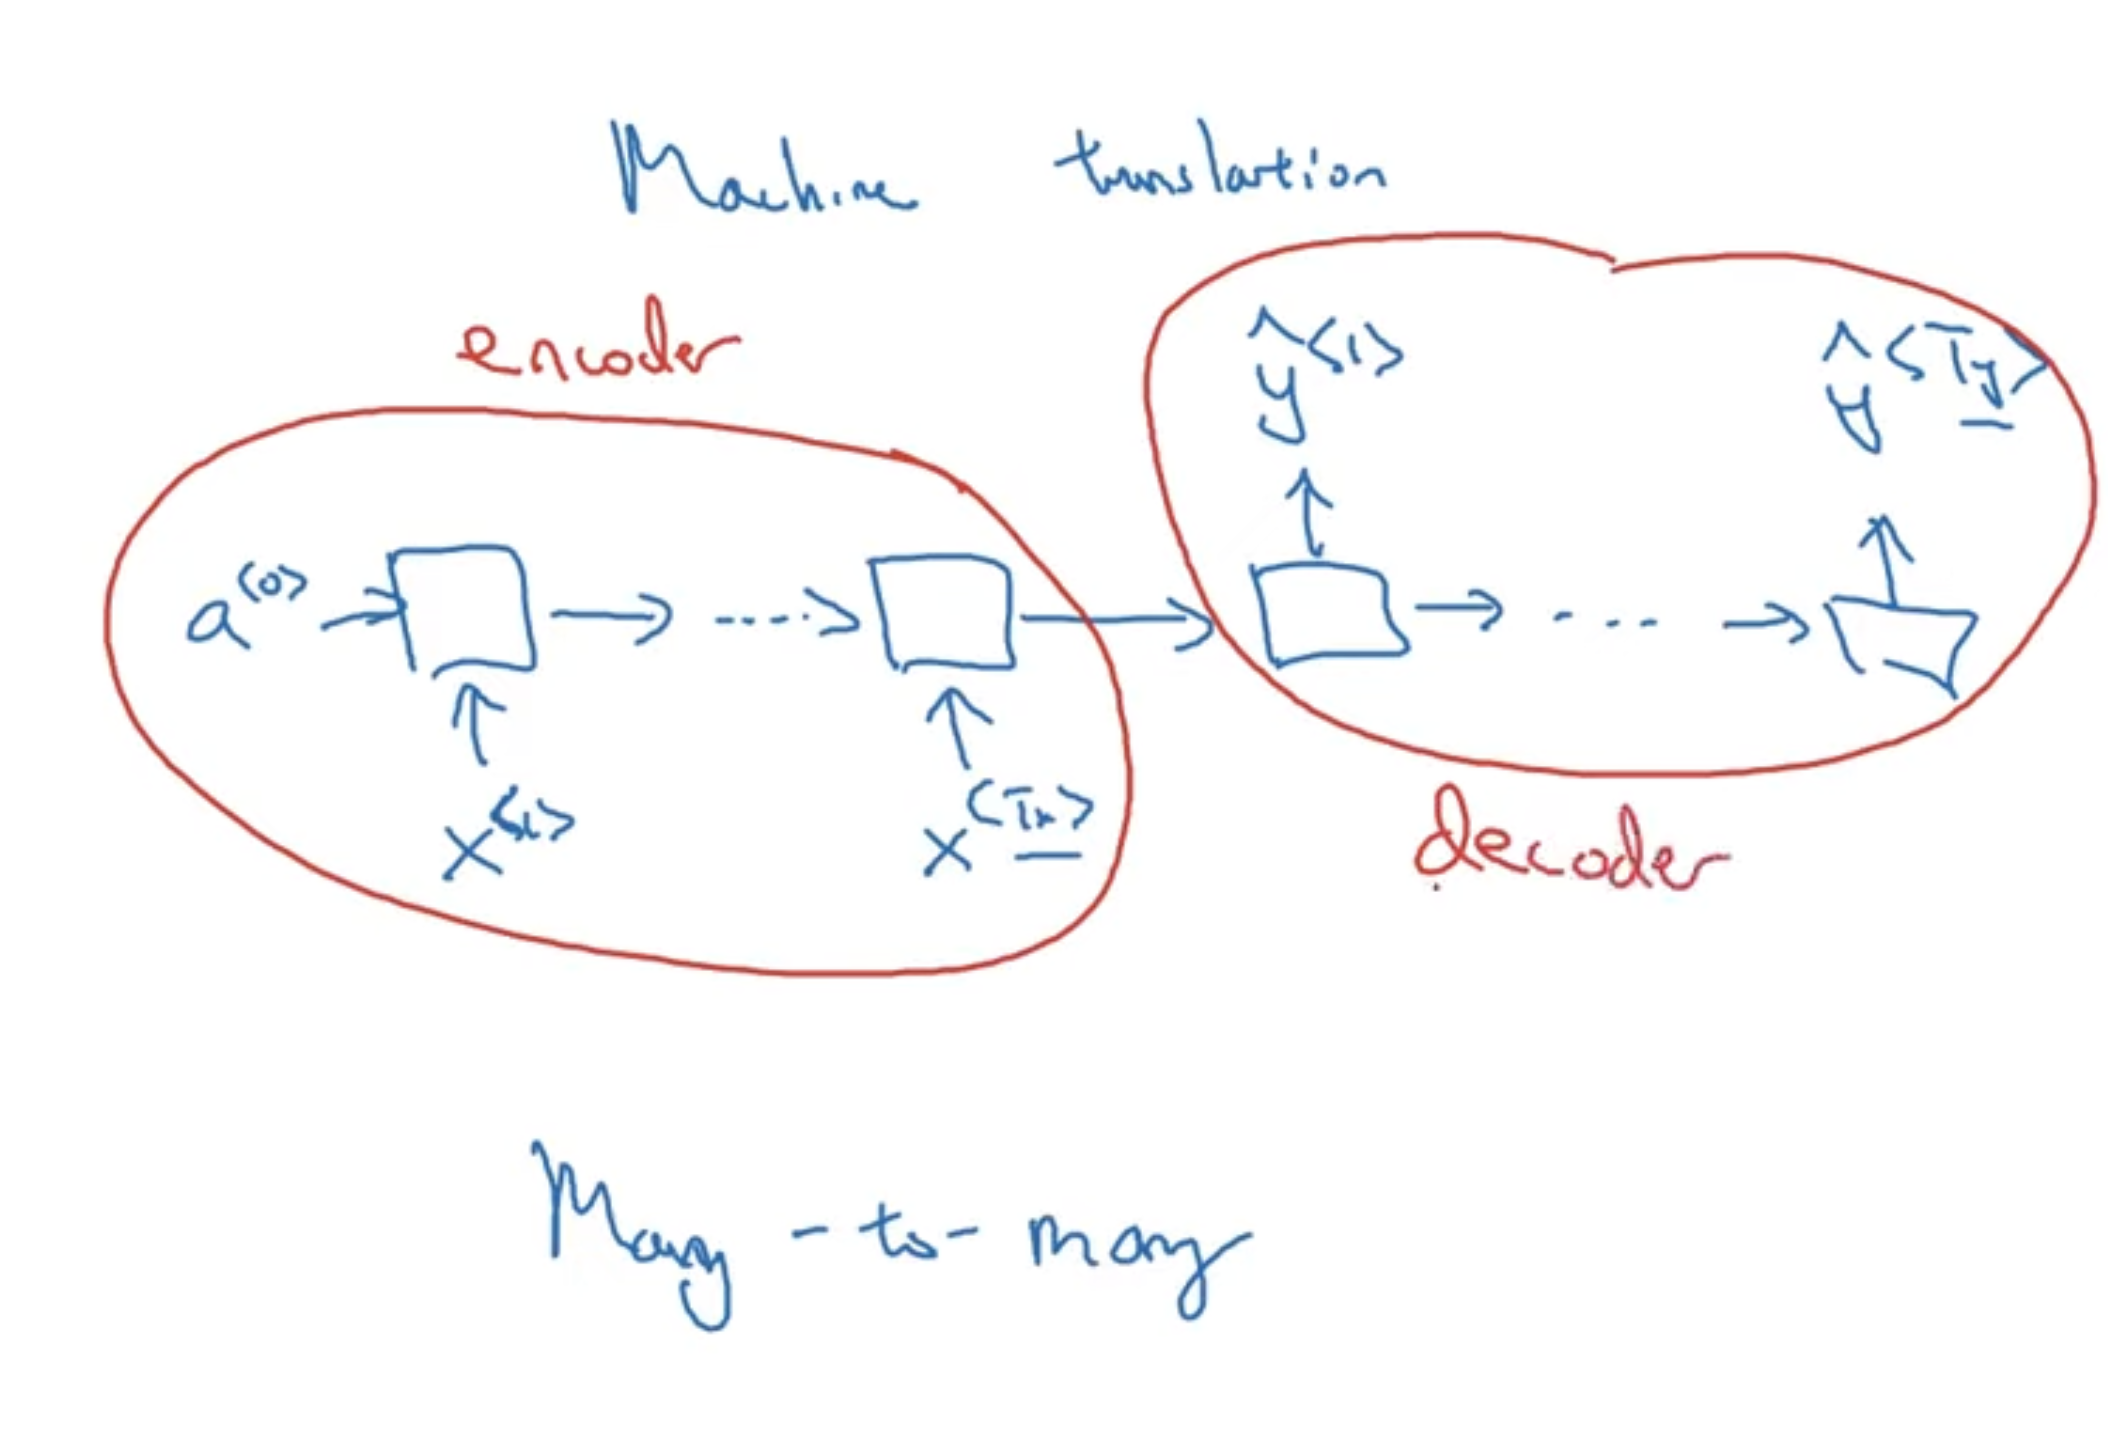 Machine translation
encoder
ŷ<1> ŷ<Ty>
a<0> → → ....> → → ... →
x<1> x<Tx>
decoder
Many-to-many